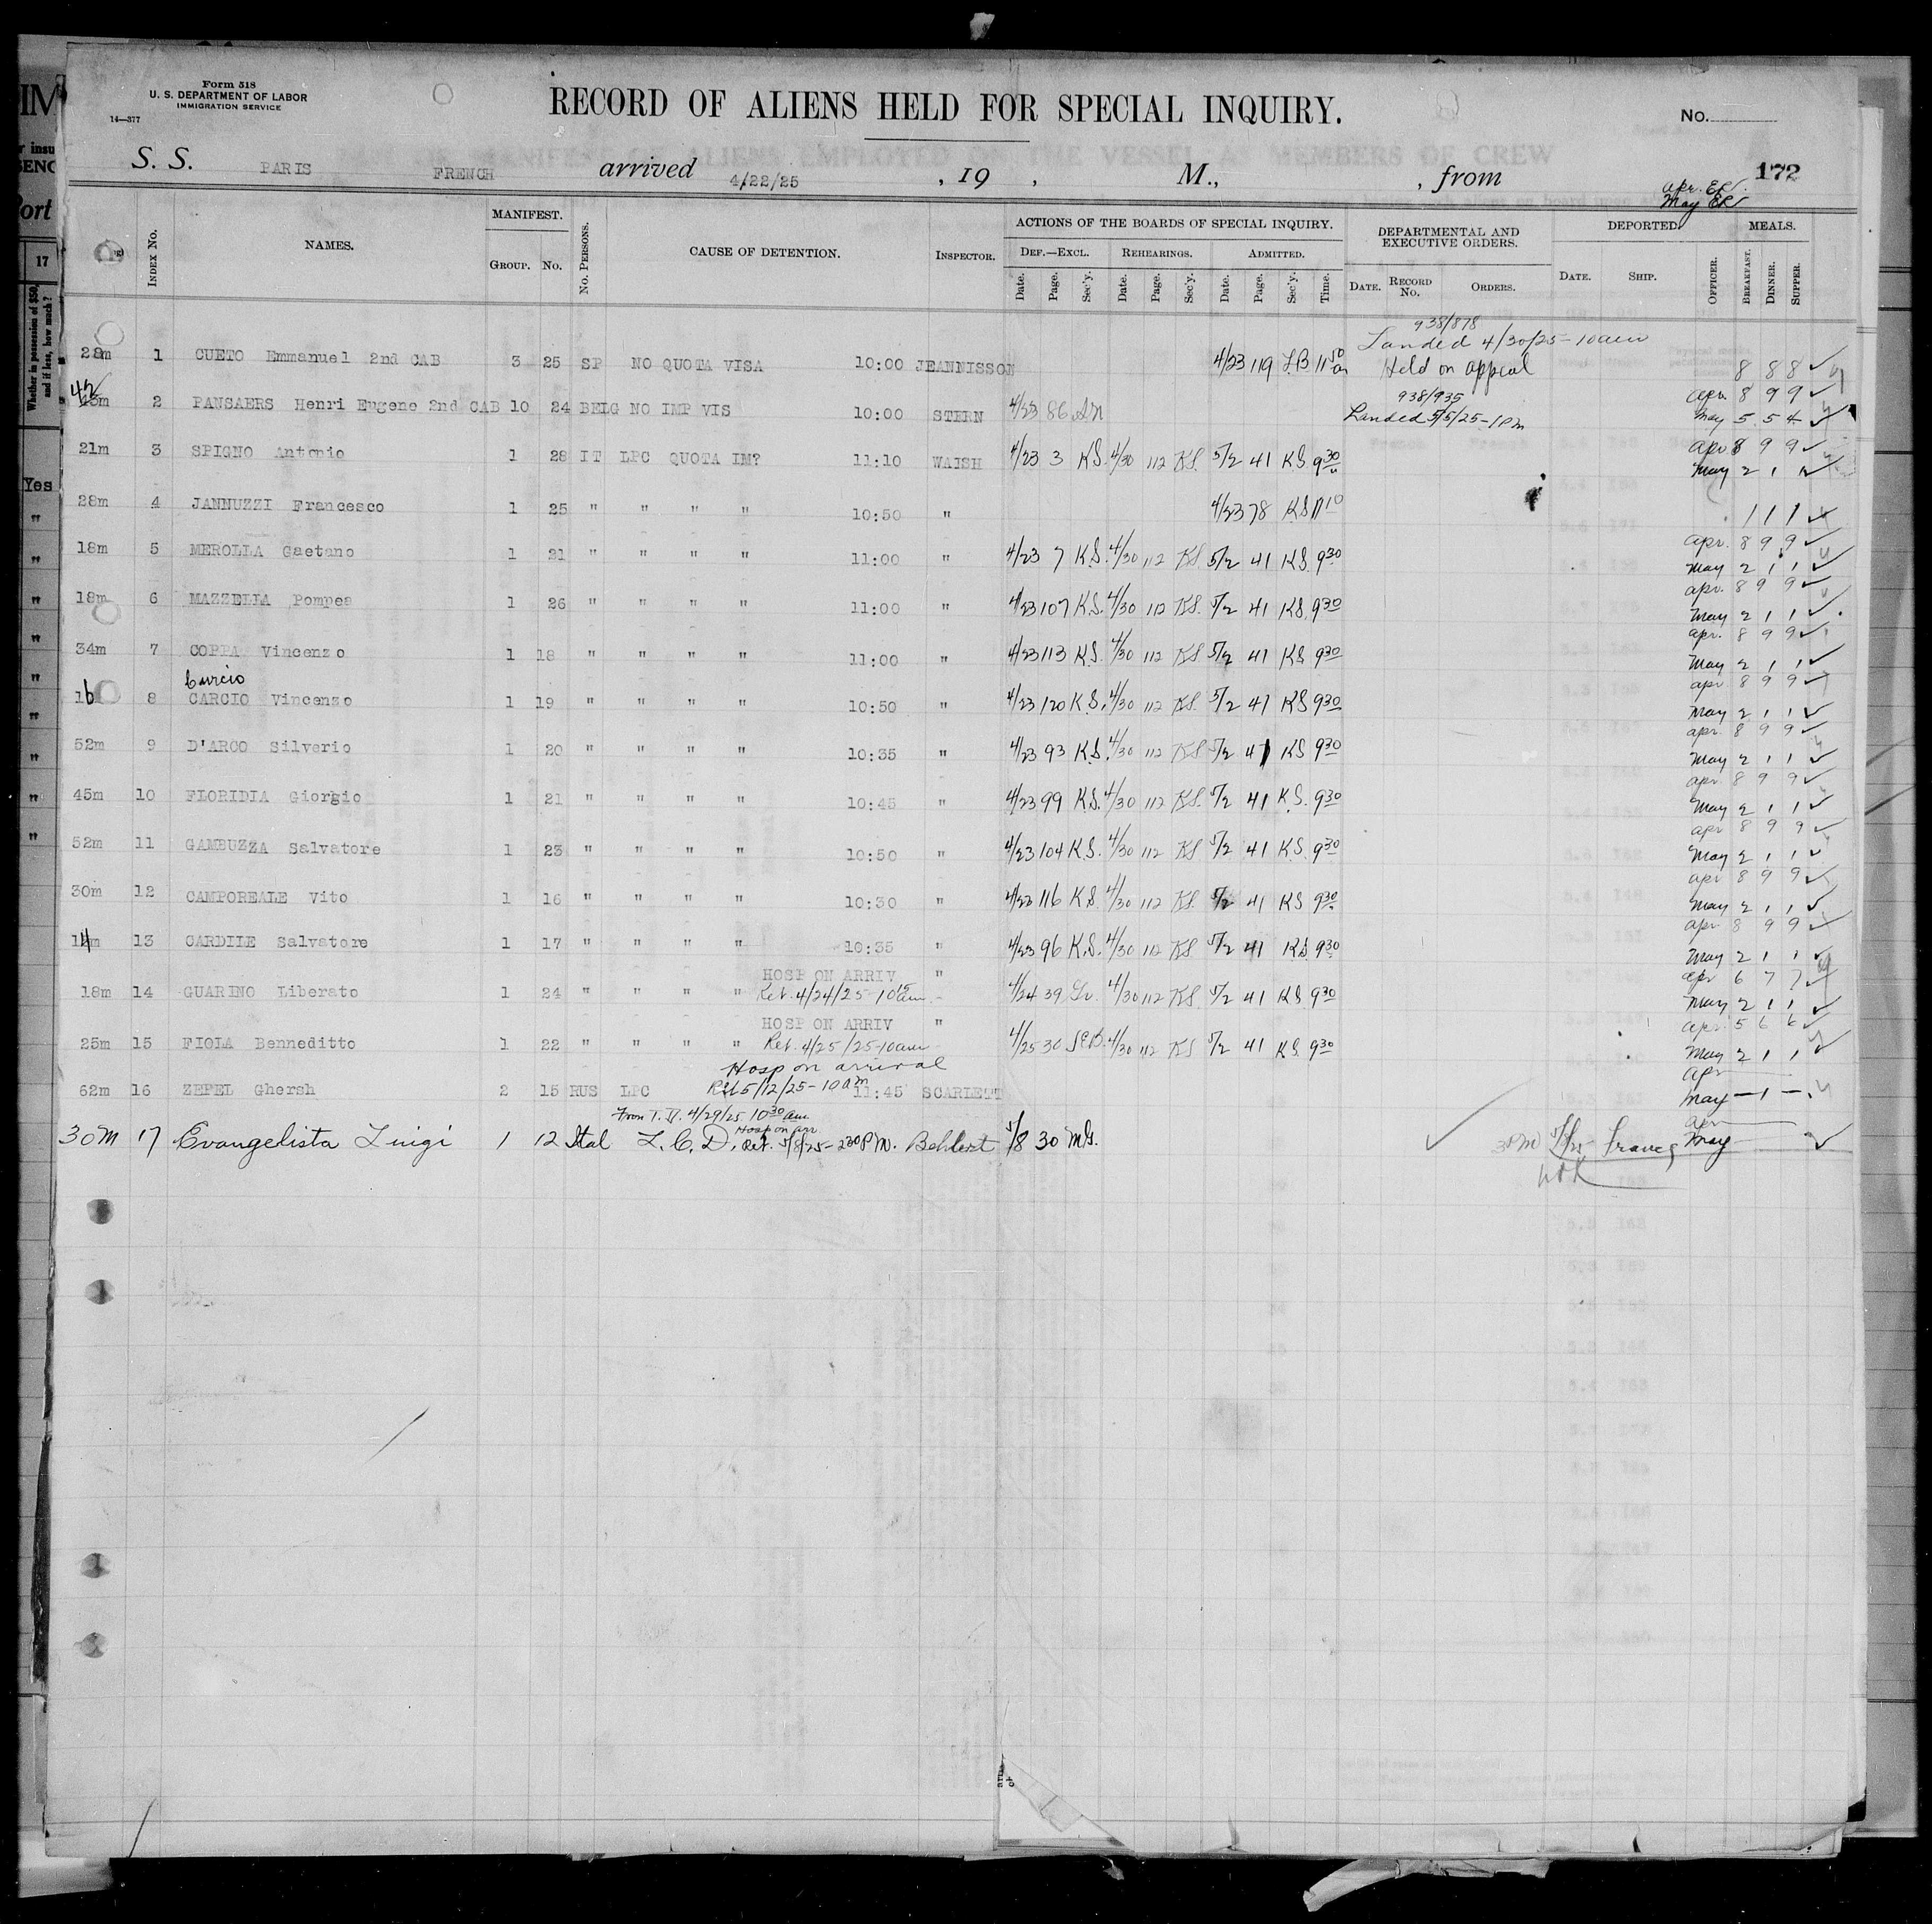 Form 518
U. S. DEPARTMENT OF LABOR
IMMIGRATION SERVICE
14—377
RECORD OF ALIENS HELD FOR SPECIAL INQUIRY.
No.
S. S. PARIS FRENCH arrived 4/22/25, 19 , M., , from 172
Apr. ER
May ER
INDEX No. NAMES. MANIFEST. GROUP. No. No. PERSONS. CAUSE OF DETENTION. INSPECTOR. ACTIONS OF THE BOARDS OF SPECIAL INQUIRY. DEPARTMENTAL AND EXECUTIVE ORDERS. DEPORTED. MEALS.
DEF.—EXCL. REHEARINGS. ADMITTED.
Date. Page. Sec'y. Date. Page. Sec'y. Date. Page. Sec'y. Time. DATE. RECORD No. ORDERS. DATE. SHIP. OFFICER. BREAKFAST. DINNER. SUPPER.
938/878
Landed 4/30/25-10am
28m 1 CUETO Emmanuel 2nd CAB 3 25 SP NO QUOTA VISA 10:00 JEANNISSON 4/23 119 L.B 11 50 Held on appeal 8 8 8
42
938/935 Apr. 8 9 9
2 PANSAERS Henri Eugene 2nd CAB 10 24 BELG NO IMP VIS 10:00 STERN 4/23 86 Landed 5/5/25-1PM May 5 5 4
21m 3 SPIGNO Antonio 1 28 IT LPC QUOTA IM? 11:10 WALSH 4/23 3 K.S. 4/30 112 K.S. 5/2 41 K.S. 9 30 Apr 8 9 9
May 2 1 1
28m 4 JANNUZZI Francesco 1 25 " " " " 10:50 " 4/23 78 K.S 11 10 1 1 1
18m 5 MEROLLA Gaetano 1 21 " " " " 11:00 " 4/23 7 K.S. 4/30 112 K.S. 5/2 41 K.S. 9 30 Apr. 8 9 9
May 2 1 1
18m 6 MAZZELLA Pompea 1 26 " " " " 11:00 " 4/23 107 K.S. 4/30 112 K.S. 5/2 41 K.S. 9 30 Apr. 8 9 9
May 2 1 1
34m 7 COPPA Vincenzo 1 18 " " " " 11:00 " 4/23 113 K.S. 4/30 112 K.S 5/2 41 K.S 9 30 Apr. 8 9 9
May 2 1 1
Curcio
16 8 CARCIO Vincenzo 1 19 " " " " 10:50 " 4/23 120 K.S. 4/30 112 K.S. 5/2 41 K.S 9 30 Apr 8 9 9
May 2 1 1
52m 9 D'ARCO Silverio 1 20 " " " " 10:35 " 4/23 93 K.S. 4/30 112 K.S 5/2 41 K.S 9 30 Apr. 8 9 9
May 2 1 1
45m 10 FLORIDIA Giorgio 1 21 " " " " 10:45 " 4/23 99 K.S. 4/30 112 K.S. 5/2 41 K.S. 9 30 Apr 8 9 9
May 2 1 1
52m 11 GAMBUZZA Salvatore 1 23 " " " " 10:50 " 4/23 104 K.S. 4/30 112 K.S 5/2 41 K.S. 9 30 Apr 8 9 9
May 2 1 1
30m 12 CAMPOREALE Vito 1 16 " " " " 10:30 " 4/23 116 K.S. 4/30 112 K.S. 5/2 41 K.S 9 30 Apr 8 9 9
May 2 1 1
14m 13 CARDILE Salvatore 1 17 " " " " 10:35 " 4/23 96 K.S. 4/30 112 K.S 5/2 41 K.S. 9 30 Apr 8 9 9
May 2 1 1
HOSP ON ARRIV " Apr 6 7 7
18m 14 GUARINO Liberato 1 24 " " " " Ret. 4/24/25 10 15 am 4/24 39 4/30 112 K.S 5/2 41 K.S 9 30 May 2 1 1
HOSP ON ARRIV " Apr. 5 6 6
25m 15 FIOLA Benneditto 1 22 " " " " Ret. 4/25/25-10am 4/25 30 4/30 112 K.S 5/2 41 K.S 9 30 May 2 1 1
Hosp on arrival Apr
62m 16 ZEPEL Ghersh 2 15 RUS LPC Ret 5/12/25-10am 11:45 SCARLETT May — 1 —
From T.D. 4/29/25 10 30 am Apr
Hosp on arr.
30 M 17 Evangelista Luigi 1 12 Ital L.C.D. Ret. 5/8/25-2 30 P.M. 5/8 30 M.G. May
17
Whether in possession of $50, and if less, how much?
Yes